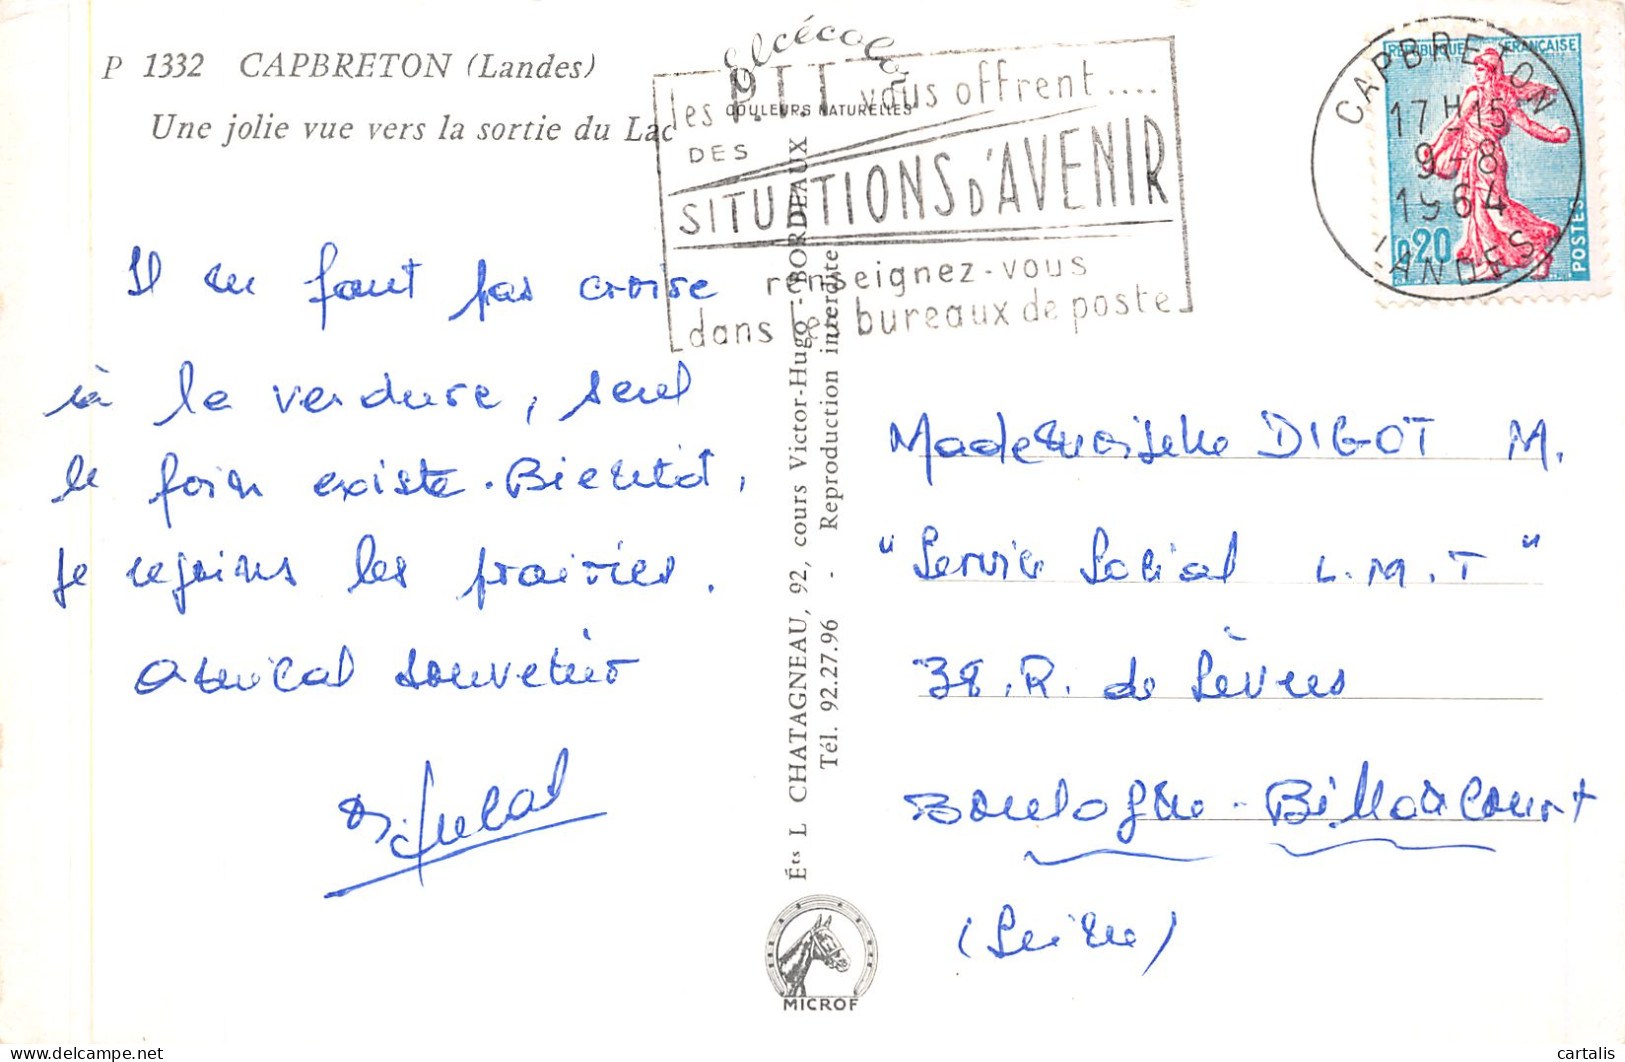 P 1332 CAPBRETON (Landes)
Une jolie vue vers la sortie du Lac
COULEURS NATURELLES
les P.T.T. vous offrent....
DES
SITUATIONS D'AVENIR
renseignez-vous
dans les bureaux de poste
REPUBLIQUE FRANÇAISE
0,20
POSTES
CAPBRETON
17 H 15
9 - 8
1964
LANDES
Il ne faut pas croire
à la verdure, seul
le foin existe. Bientôt,
je rejoins les prairies.
Amical souvenir
Éts L CHATAGNEAU, 92, cours Victor-Hugo - BORDEAUX
Tél. 92.27.96 - Reproduction interdite
MICROF
Mademoiselle DIGOT M.
"Service Social L.M.T"
38, R. de Sèvres
Boulogne-Billancourt
(Seine)
cartalis